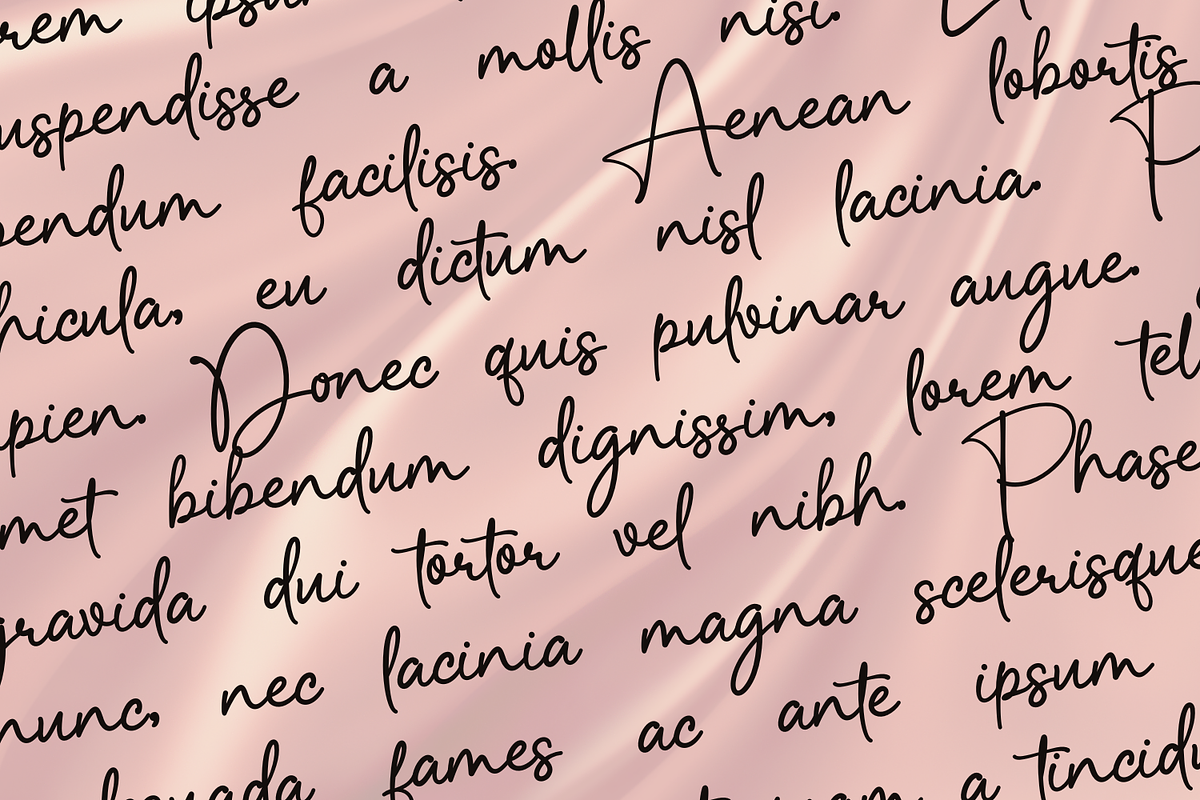 rem ipsum
uspendisse a mollis nisi.
endum facilisis. Aenean lobortis
hicula, eu dictum nisl lacinia. P
pien. Donec quis pulvinar augue.
met bibendum dignissim, lorem tel
gravida dui tortor vel nibh. Phase
nunc, nec lacinia magna scelerisque
fames ac ante ipsum
a tincidu